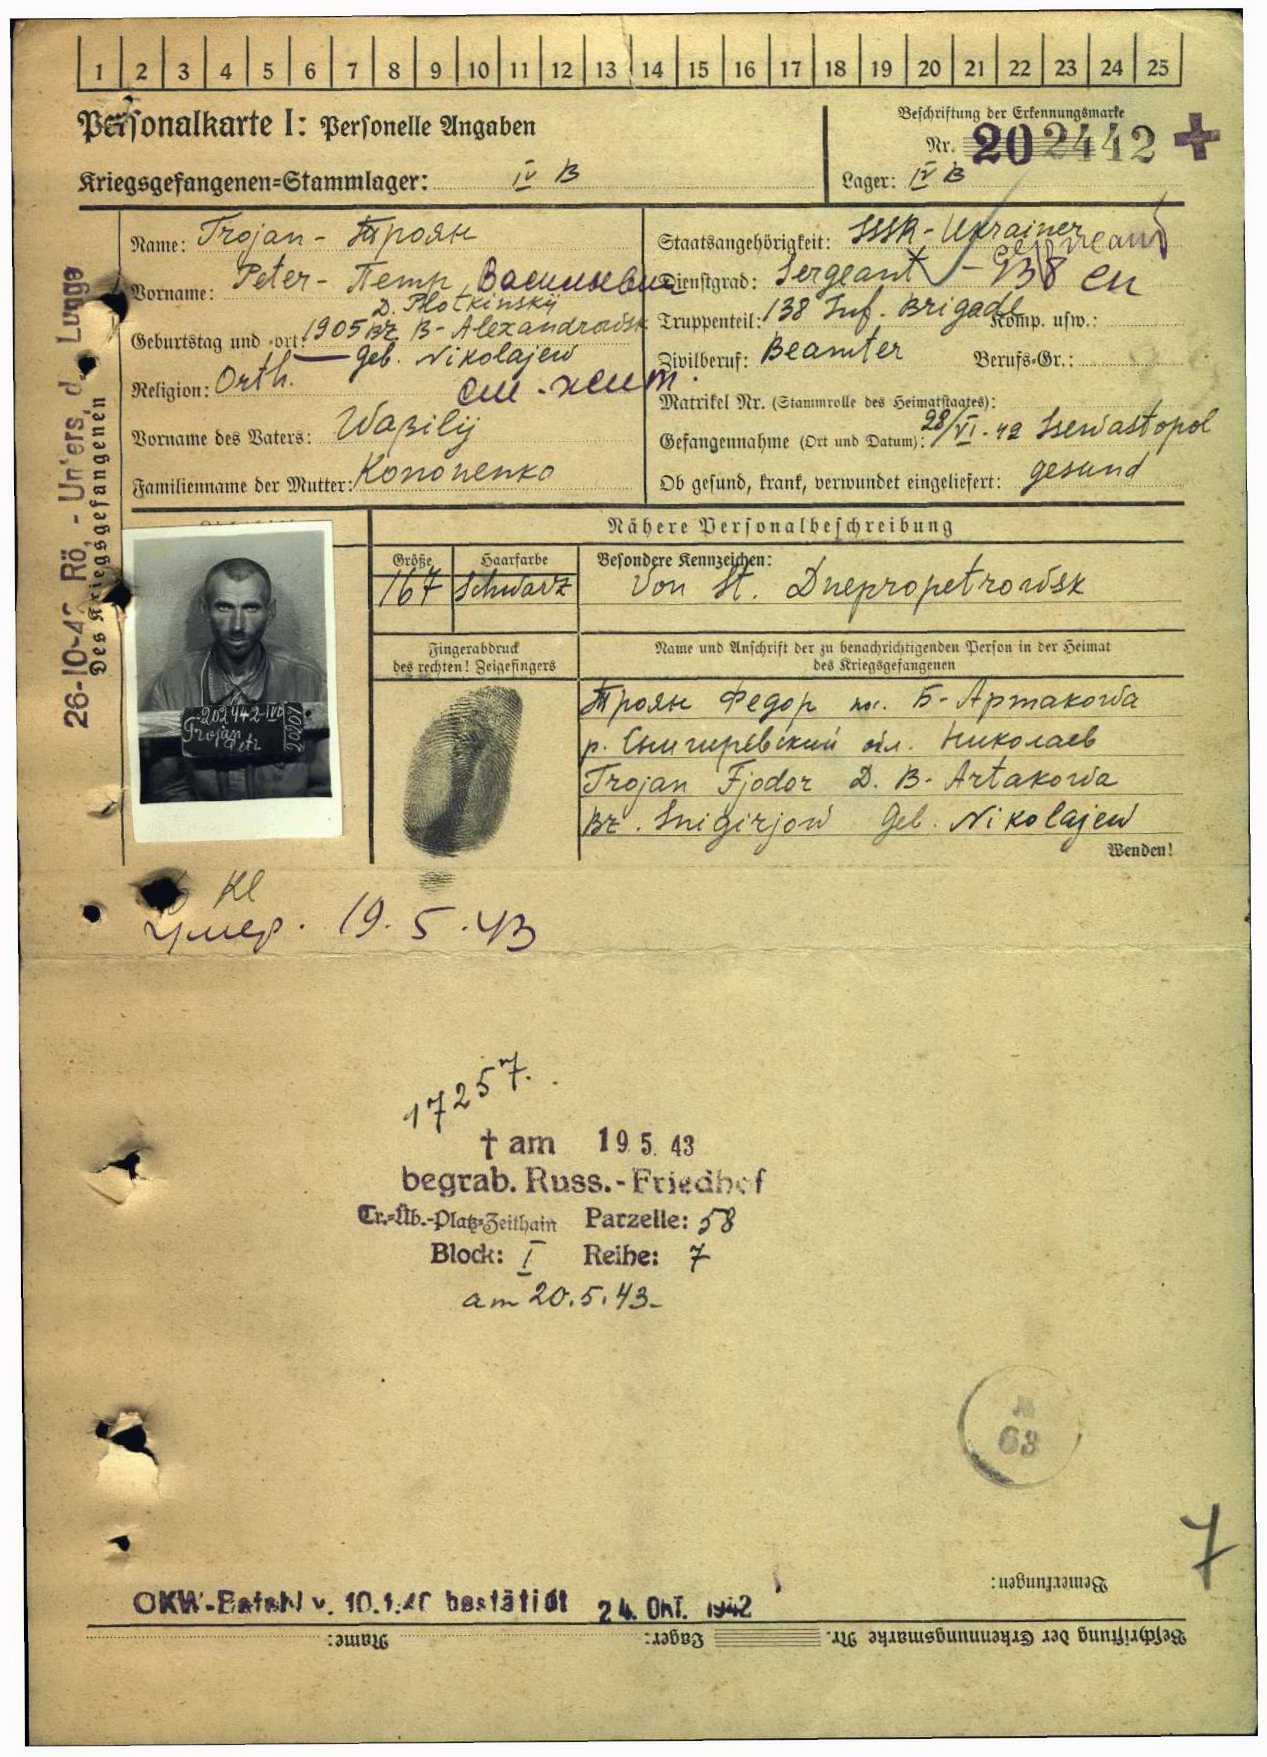 1 2 3 4 5 6 7 8 9 10 11 12 13 14 15 16 17 18 19 20 21 22 23 24 25
Personalkarte I: Personelle Angaben
Beschriftung der Erkennungsmarke
Nr. 202442
Kriegsgefangenen=Stammlager: IV B
Lager: IV B
Name: Trojan - Троян
Vorname: Peter - Петр Васильевич
D. Plotkinskij
Geburtstag und -ort: 1905 Bz B- Alexandrowsk
Geb. Nikolajew
Religion: Orth.
Vorname des Vaters: Waßilij
Familienname der Mutter: Kononenko
Staatsangehörigkeit: SSSR - Ukrainer
Dienstgrad: Sergeant
Truppenteil: 138 Inf. Brigade Komp. usw.:
Zivilberuf: Beamter Berufs=Gr.:
Matrikel Nr. (Stammrolle des Heimatstaates):
Gefangennahme (Ort und Datum): 28/VI - 42 Ssewastopol
Ob gesund, krank, verwundet eingeliefert: gesund
Des Kriegsgefangenen
Nähere Personalbeschreibung
Größe Haarfarbe Besondere Kennzeichen:
167 Schwarz Von St. Dnepropetrowsk
Fingerabdruck
des rechten! Zeigefingers
Name und Anschrift der zu benachrichtigenden Person in der Heimat
des Kriegsgefangenen
Троян Федор пос. Б- Артакова
р. Снигиревский обл. Николаев
Trojan Fjodor D. B- Artakowa
Bz. Snigirjow Geb. Nikolajew
Wenden!
202442 IVB
Trojan
Petr
Kl
Умер. 19.5.43
17257.
† am 19 5. 43
begrab. Russ.-Friedhof
Tr.=Üb.-Platz=Zeithain Parzelle: 58
Block: I Reihe: 7
am 20.5.43-
№
63
7
Bemerkungen:
OKW-Befehl v. bestätigt 24. Okt. 1942
Beschriftung der Erkennungsmarke Nr. Lager: Name: